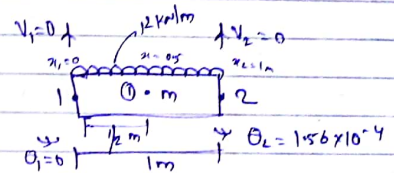 V₁=0
12 kN/m
V₂=0
x₁=0
x=0.5
x₂=1m
1
① • m
2
½ m
θ₁=0
1m
θ₂ = 1.56×10⁻⁴